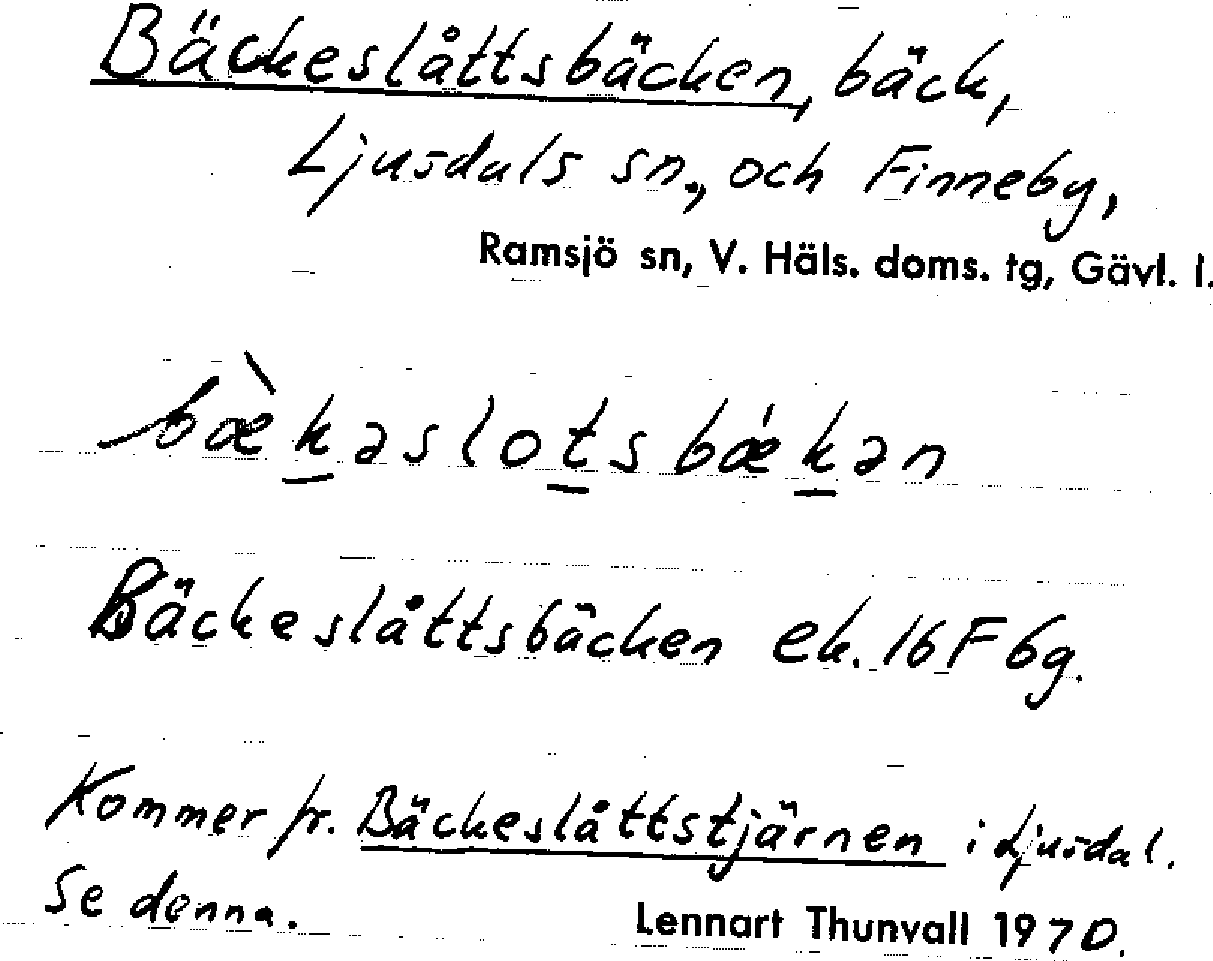 Bäckeslåttsbäcken, bäck,
Ljusdals sn., och Finneby,
Ramsjö sn, V. Häls. doms. tg, Gävl. l.
bæ̀k̲əslot̲sbǽk̲ən
Bäckeslåttsbäcken ek. 16F6g.
Kommer fr. Bäckeslåttstjärnen i Ljusdal.
Se denna.
Lennart Thunvall 1970.